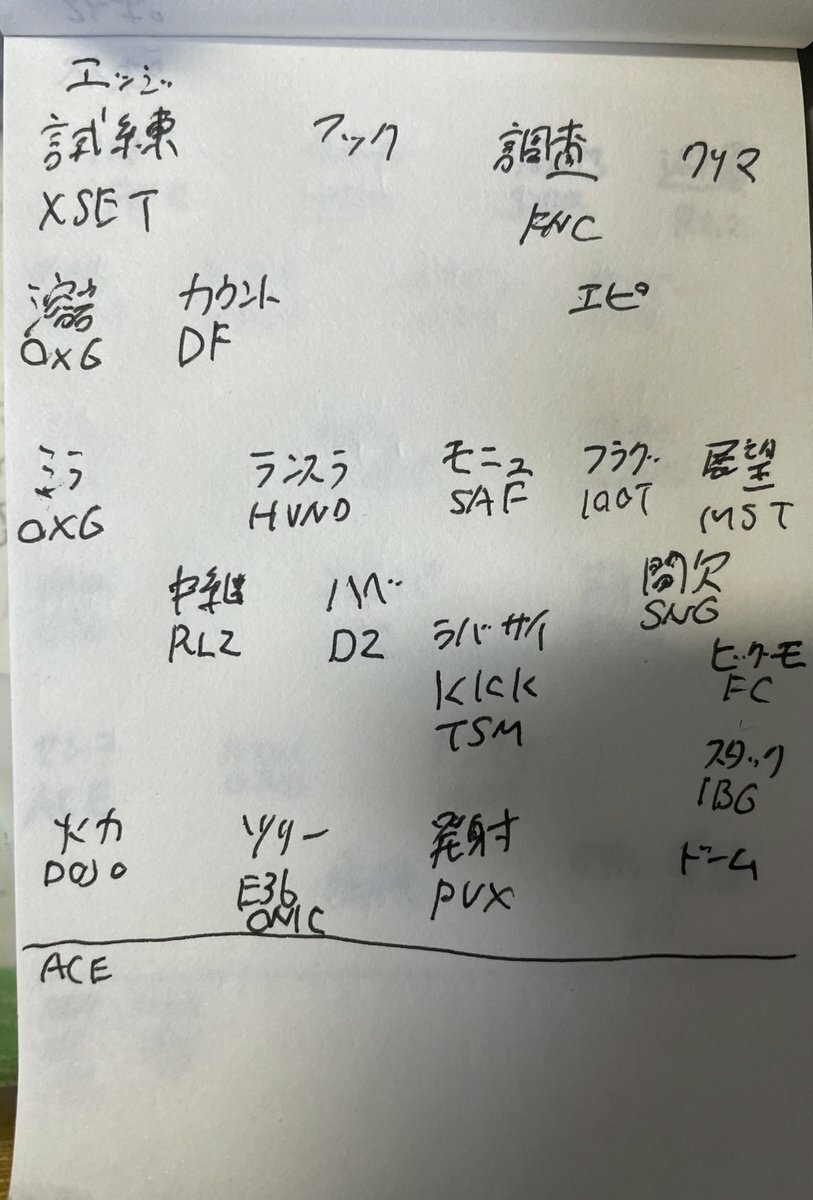 エッジ
試練 フック 調査 クリマ
XSET FNC
溶岩 カウント エピ
OXG DF
ミラ ランスラ モニュ フラグ 展望
OXG HVND SAF 100T MST
中継 ハベ 間欠
RLZ DZ SNG
ラバサイ ビッグモ
KCK FC
TSM スタック
IBG
火力 ツリー 発射 ドーム
DOJO E36 PVX
ONIC
ACE